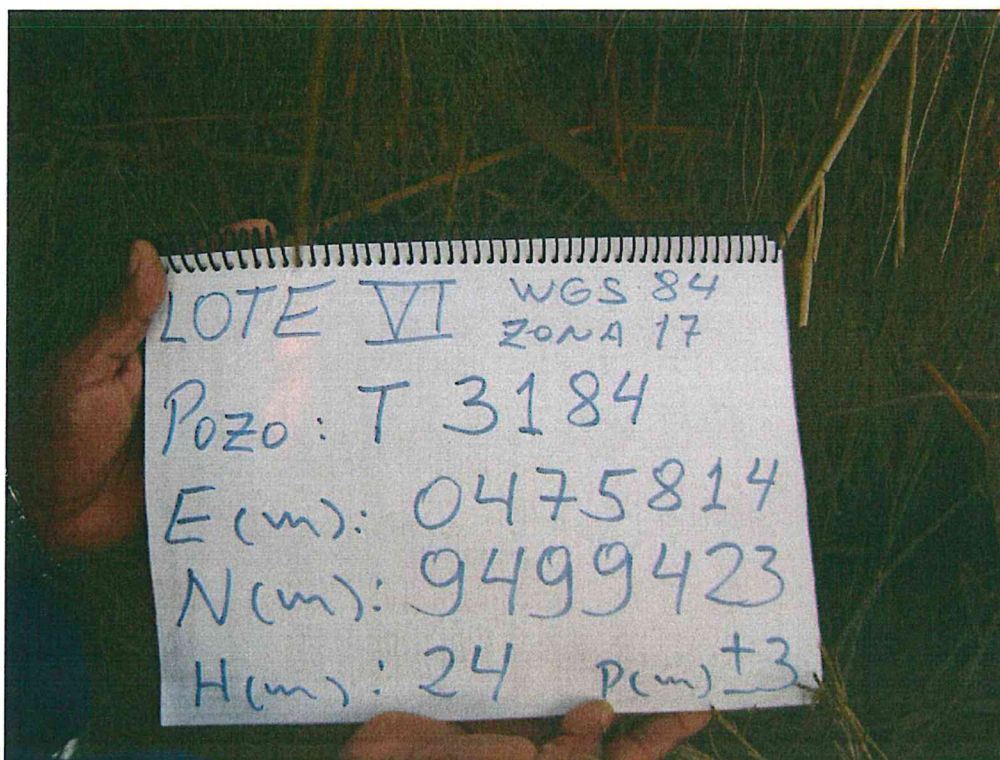 LOTE VI WGS 84
ZONA 17
Pozo: T 3184
E(m): 0475814
N(m): 9499423
H(m): 24 P(m) ±3